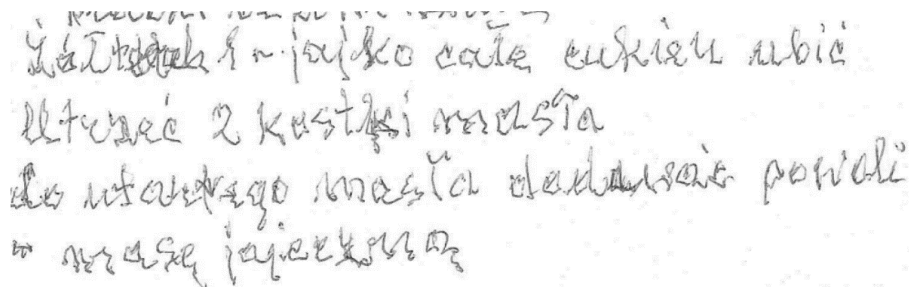 żółtek 1 jajko całe cukier ubić
Utrzeć 2 kostki masła
do utartego masła dodawać powoli
masę jajeczną